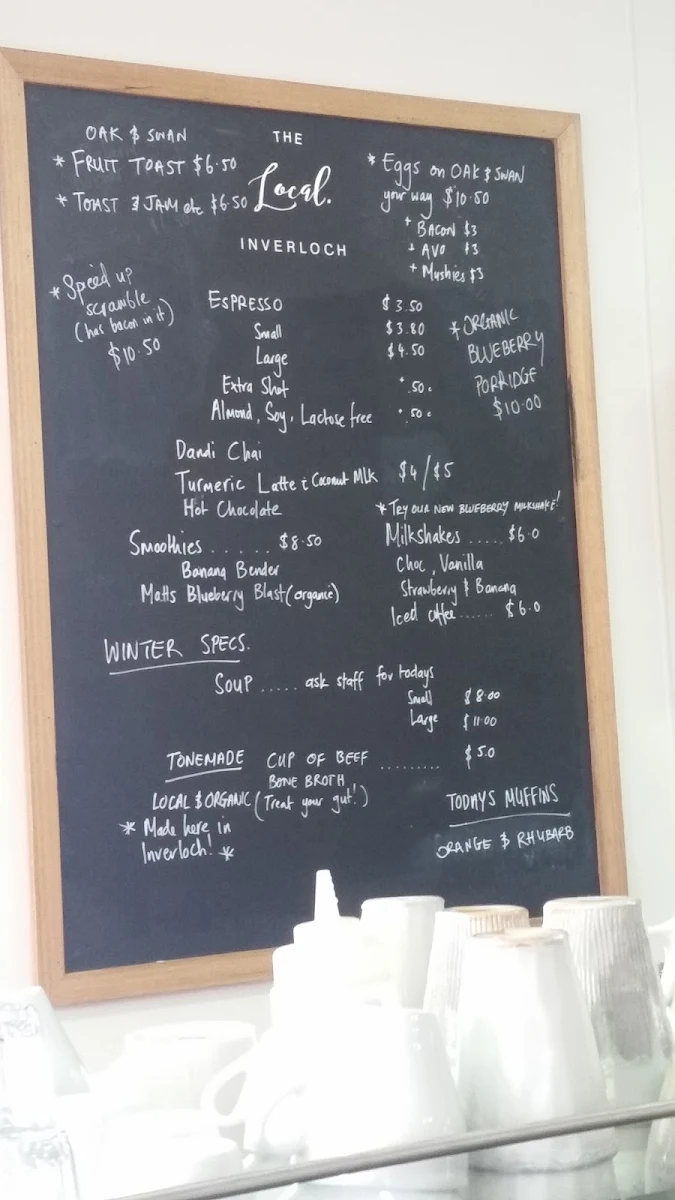 OAK & SWAN
* FRUIT TOAST $6.50
* TOAST & JAM etc $6.50
THE
Local.
INVERLOCH
* Eggs on OAK & SWAN
your way $10.50
+ BACON $3
+ AVO $3
+ Mushies $3
* Speed up
scramble
(has bacon in it)
$10.50
ESPRESSO $3.50
Small $3.80
Large $4.50
Extra Shot .50c
Almond, Soy, Lactose free .50c
* ORGANIC
BLUEBERRY
PORRIDGE
$10.00
Dandi Chai
Turmeric Latte & Coconut Mlk $4/$5
Hot Chocolate
Smoothies ...... $8.50
Banana Bender
Matts Blueberry Blast (organic)
* TRY OUR NEW BLUEBERRY MILKSHAKE!
Milkshakes ..... $6.0
Choc, Vanilla
Strawberry & Banana
Iced coffee ...... $6.0
WINTER SPECS.
SOUP ..... ask staff for todays
Small $8.00
Large $11.00
TONEMADE CUP OF BEEF ......... $5.0
BONE BROTH
LOCAL & ORGANIC (Treat your gut!)
* Made here in
Inverloch! *
TODAYS MUFFINS
ORANGE & RHUBARB